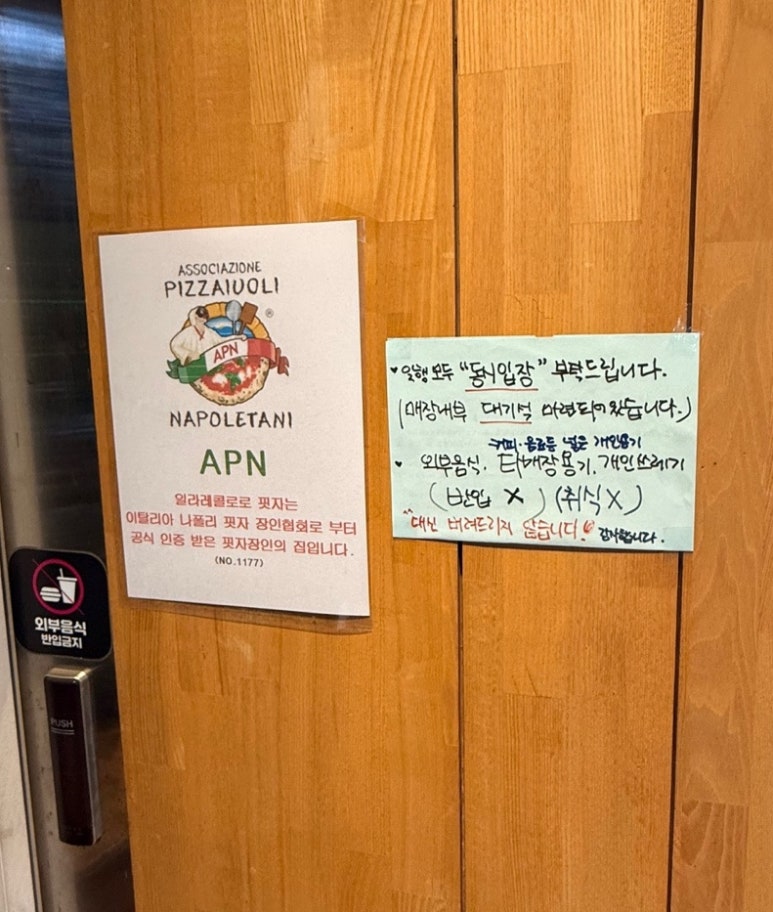 ASSOCIAZIONE
PIZZAIUOLI
®
APN
NAPOLETANI
APN
일라레콜로로 핏자는
이탈리아 나폴리 핏자 장인협회로 부터
공식 인증 받은 핏자장인의 집입니다.
(NO.1177)
♥ 일행 모두 "동시입장" 부탁드립니다.
(매장내부 대기석 마련되어있습니다.)
커피·음료등 넣은 개인용기
♥ 외부음식. 타매장용기. 개인쓰레기
(반입 X) (취식X)
"대신 버려드리지 않습니다! 감사합니다.
외부음식
반입금지
PUSH